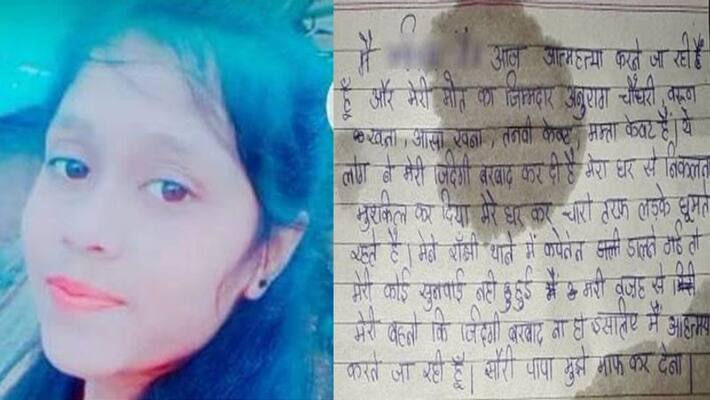 मै आज आत्महत्या करने जा रही
हूँ और मेरी मौत का जिम्मदार अनुराग चौधरी, वरूण
खना, आसा खना, तनवी केवट, ममता केवट है। ये
लोग ने मेरी जिंदगी बरबाद कर दी है मेरा घर से निकलना
मुश्किल कर दिया मेरे घर कर चारो तरफ लडके घूमते
रहते है। मेने राँझी थाने में डालने गई तो
मेरी कोई सुनवाई नही हुई मरी वजह से
मेरी बहनो कि जिंदगी बरबाद ना हो इसलिए मैं
करने जा रही हूँ। सौरी पापा मुझे माफ कर देना।